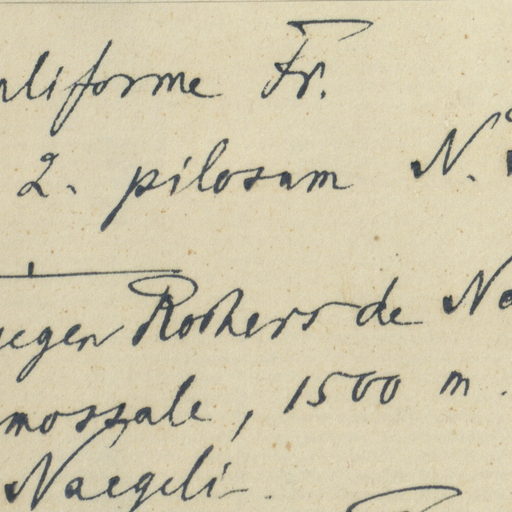 liforme Fr.
2. pilosum N.
gegen Rochers de Na
mossale, 1500 m.
Naegeli